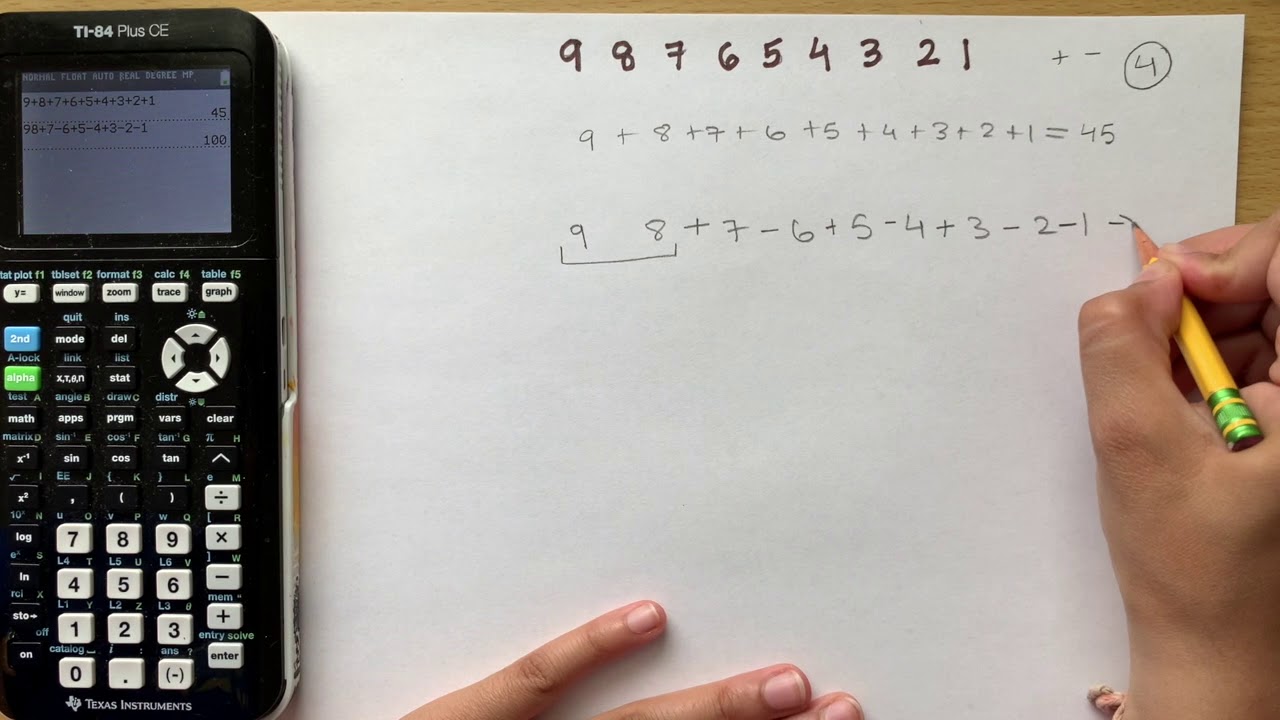 TI-84 Plus CE
NORMAL FLOAT AUTO REAL DEGREE MP
9+8+7+6+5+4+3+2+1
45
98+7-6+5-4+3-2-1
100
stat plot f1 tblset f2 format f3 calc f4 table f5
y= window zoom trace graph
quit ins
2nd mode del
A-lock link list
alpha x,T,θ,n stat
test A angle B draw C distr
math apps prgm vars clear
matrix D sin⁻¹ E cos⁻¹ F tan⁻¹ G π H
x⁻¹ sin cos tan ^
√ I EE J { K } L e M
x² , ( ) ÷
10ˣ N u O v P w Q [ R
log 7 8 9 ×
eˣ S L4 T L5 U L6 V ] W
ln 4 5 6 −
rcl X L1 Y L2 Z L3 θ mem "
sto→ 1 2 3 +
off catalog i : ans ? entry solve
on 0 . (-) enter
TEXAS INSTRUMENTS
9 8 7 6 5 4 3 2 1 + - 4
9 + 8 + 7 + 6 + 5 + 4 + 3 + 2 + 1 = 45
9 8 + 7 - 6 + 5 - 4 + 3 - 2 - 1